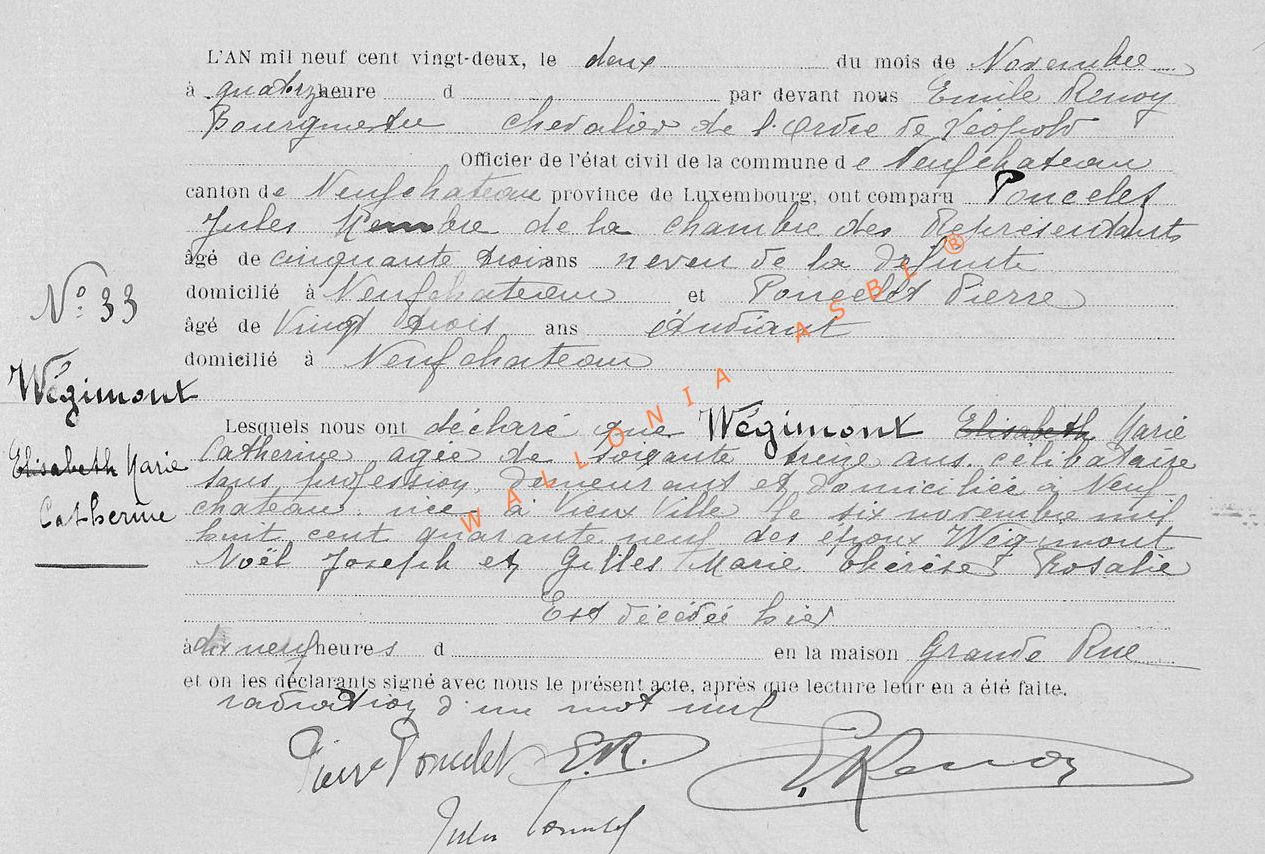 L'AN mil neuf cent vingt-deux, le deux du mois de Novembre
à quatorze heure d par devant nous Emile Renoy
Bourgmestre chevalier de l'Ordre de Léopold
Officier de l'état civil de la commune de Neufchateau
canton de Neufchateau province de Luxembourg, ont comparu Poncelet
Jules Membre de la chambre des Représentants
âgé de cinquante trois ans neveu de la défunte
N° 33
domicilié à Neufchateau et Poncelet Pierre
âgé de Vingt trois ans étudiant
domicilié à Neufchateau
Wégimont
Elisabeth Marie
Catherine
Lesquels nous ont déclaré que Wégimont Elisabeth Marie
Catherine agée de soixante treize ans célibataire
sans profession, demeurant et domiciliée à Neuf
chateau née à Vieux Ville le six novembre mil
huit cent quarante neuf des époux Wégimont
Noël Joseph et Gilles Marie Thérèse Rosalie
Est décédée hier
à dix neuf heures d en la maison Grande Rue
et on les déclarants signé avec nous le présent acte, après que lecture leur en a été faite.
radiation d'un mot nul
Pierre Poncelet E.R. E. Renoy
Jules Poncelet
WALLONIA ASBL ®